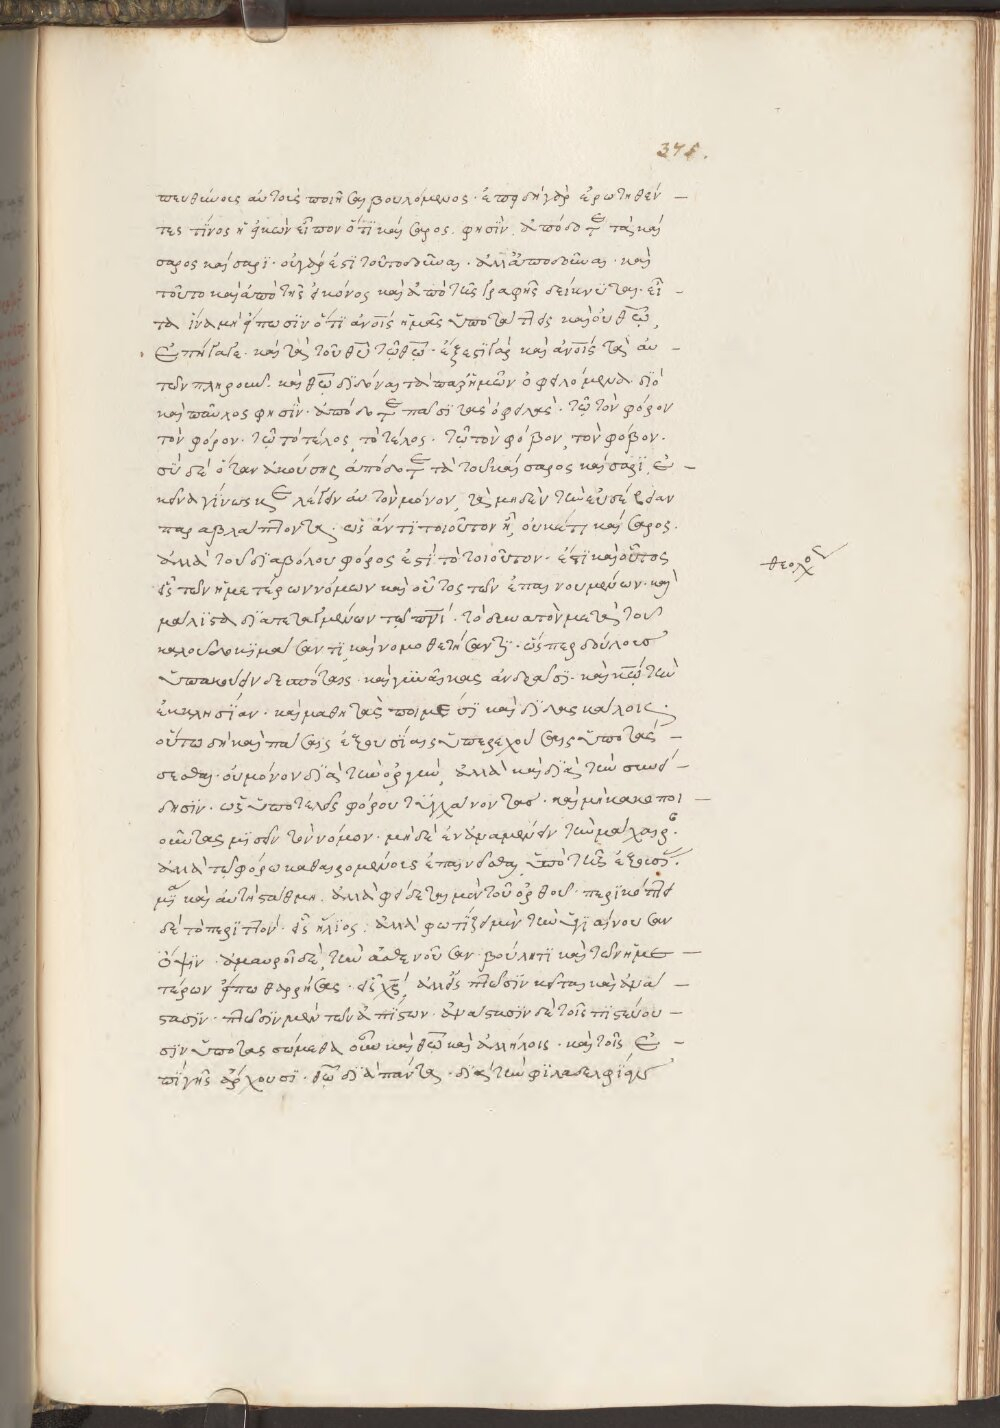 375.
πευθύνοις αὐτοὶς ποιῆσαι βουλόμενος· ἐπειδὴ γὰρ ἐρωτηθέν –
τες τίνος ἡ εἰκὼν εἶπον ὅτι καίσαρος. φησὶν, ἀπόδοτε τὰ καί
σαρος καίσαρι· οὐ γάρ ἐστι τοῦτο δοῦναι. ἀλλ' ἀποδοῦναι· καὶ
τοῦτο καὶ ἀπὸ τῆς εἰκόνος καὶ ἀπὸ τῆς γραφῆς δείκνυται. εἶ –
τα ἵνα μὴ εἴπωσιν ὅτι ἀνοις ἡμᾶς ὑποτάττεις καὶ οὐ θεῷ,
ἐπήγαγε. καὶ τὰ τοῦ θυ τῷ θῷ· ἔξεστι γὰρ καὶ ἀνοις τὰ αὐ –
τῶν πληροῦν. καὶ θῷ διδόναι τὰ παρ' ἡμῶν ὀφειλόμενα. διό
καὶ παῦλος φησίν· ἀπόδοτε πᾶσι τὰς ὀφειλάς. τῷ τὸν φόρον
τὸν φόρον. τῷ τὸ τέλος, τὸ τέλος. τῷ τὸν φόβον, τὸν φόβον.
σὺ δέ ὅταν ἀκούσης, ἀπόδοτε τὰ τοῦ καίσαρος καίσαρι, ἐ –
κεῖνα γίνωσκε λέγειν αὐτὸν μόνον, τὰ μηδὲν τὴν εὐσέβειαν
παραβλάπτοντα. ὡς ἄν τι τοιοῦτον ἦ, οὐκέτι καίσαρος.
ἀλλὰ τοῦ διαβόλου φόρος ἐστὶ τὸ τοιοῦτον. ἔστι καὶ οὗτος
εἷς τῶν ἡμετέρων νόμων καὶ οὗτος τῶν ἐπαινουμένων. καὶ
μάλιστα διατεταγμένων τῷ πνι· τὸ δυνατὸν μετὰ τοῦ
καλοῦ δοκιμάσαντι, καὶ νομοθετήσαντι. ὥσπερ δούλοις
ὑπακούειν δεσπόταις. καὶ γυναῖκας ἀνδράσι. καὶ κῷ τὴν
ἐκκλησίαν. καὶ μαθητὰς ποιμέσι καὶ διδασκάλοις.
οὕτω δὴ καὶ πάσαις ἐξουσίαις ὑπερεχούσαις ὑποτάσ –
σεσθαι. οὐ μόνον διὰ τὴν ὀργὴν, ἀλλὰ καὶ διὰ τὴν συνεί –
δησιν. ὡς ὑποτελεῖς φόρου τυγχάνοντας. καὶ μὴ κακοποι –
οῦντας μισεῖν τὸν νόμον. μηδὲ ἐνδιαμένειν τὴν μάχαιρ.
ἀλλὰ τῷ φόρω καθαιρομένοις ἐπαινεῖσθαι ὑπὸ τῆς ἐξουσίας.
μία καὶ αὐτὴ στάθμη. ἀλλὰ φείδεται μὲν τοῦ ὀρθοῦ. περικόπτει
δὲ τὸ περιττόν. εἷς ἥλιος. ἀλλὰ φωτίζει μὲν τὴν ὑγιαίνουσαν
ὄψιν. ἀμαυροῖ δὲ, τὴν ἀσθενοῦσαν. βούλει τι καὶ τῶν ἡμε –
τέρων εἴπω θαρρήσας. εἷς χς, ἀλλ' εἰς πτῶσιν κεῖται καὶ ἀνά –
στασιν. πτῶσιν μὲν τῶν ἀπίστων. ἀνάστασιν δὲ τοῖς πιστεύου –
σιν ὑποτασσώμεθα οὖν καὶ θῷ καὶ ἀλλήλοις. καὶ τοῖς ἐ –
πὶ γῆς ἄρχουσι. θῷ διὰ πάντα. διὰ τὴν φιλαδελφίαν
θεολόγ